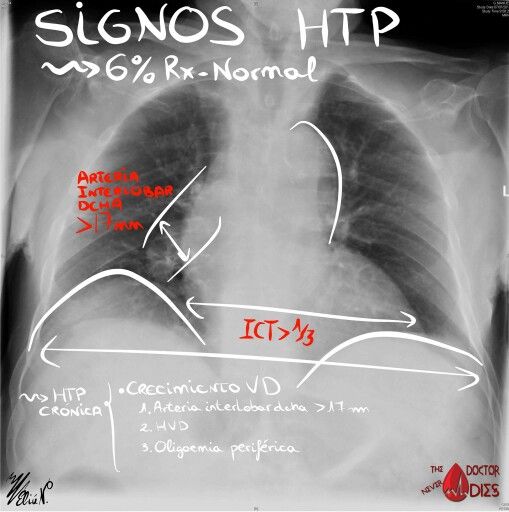 SIGNOS HTP
~> 6% Rx-Normal
ARTERIA
INTERLOBAR
DCHA
>17mm
L
ICT>1/3
~> HTP
CRÓNICA
• CRECIMIENTO VD
1. Arteria interlobar dcha >17mm
2. HVD
3. Oligoemia periférica
THE DOCTOR
NEVER DIES